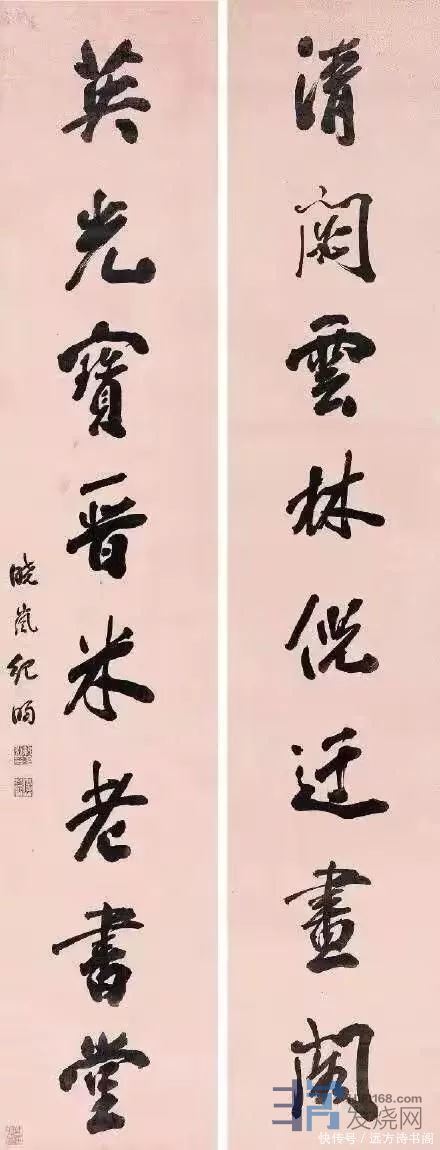 清閟雲林倪迂畫閣
英光寶晉米老書堂
曉嵐紀昀
发烧网
快传号 / 远方诗书阁